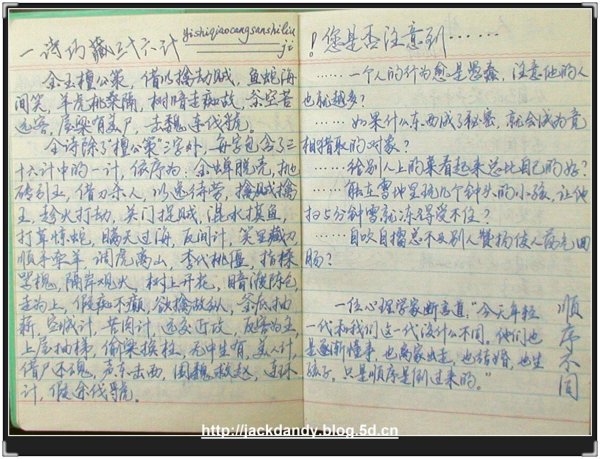 一诗巧藏三十六计
yishiqiaocangsanshiliu
ji
金玉檀公策，借以擒劫贼，鱼蛇海
间笑，羊虎桃桑隔，树暗走痴故，釜空苦
远客，屋梁有美尸，击魏连伐虢。
全诗除了"檀公策"三字外，每字包含了三
十六计中的一计，依序为：金蝉脱壳，抛
砖引玉，借刀杀人，以逸待劳，擒贼擒
王，趁火打劫，关门捉贼，混水摸鱼，
打草惊蛇，瞒天过海，反间计，笑里藏刀，
顺手牵羊，调虎离山，李代桃僵，指桑
骂槐，隔岸观火，树上开花，暗渡陈仓，
走为上，假痴不癫，欲擒故纵，釜底抽
薪，空城计，苦肉计，远交近攻，反客为主，
上屋抽梯，偷梁换柱，无中生有，美人计，
借尸还魂，声东击西，围魏救赵，连环
计，假途伐虢。
！您是否注意到……
……一个人的行为愈是愚蠢，注意他的人
也就越多？
……如果什么东西成了秘密，就会成为竞
相猎取的对象？
……给别人上的菜看起来总比自己的好？
……能在雪地里玩几个钟头的小孩，让他
扫5分钟雪就冻得受不住？
……自吹自擂总不及别人赞扬使人荡气回
肠？
一位心理学家断言道，"今天年轻
一代和我们这一代没什么不同。他们也
是逐渐懂事，也离家出走，也结婚，也生
孩子。只是顺序是倒过来的。"
顺序不同
http://jackdandy.blog.5d.cn